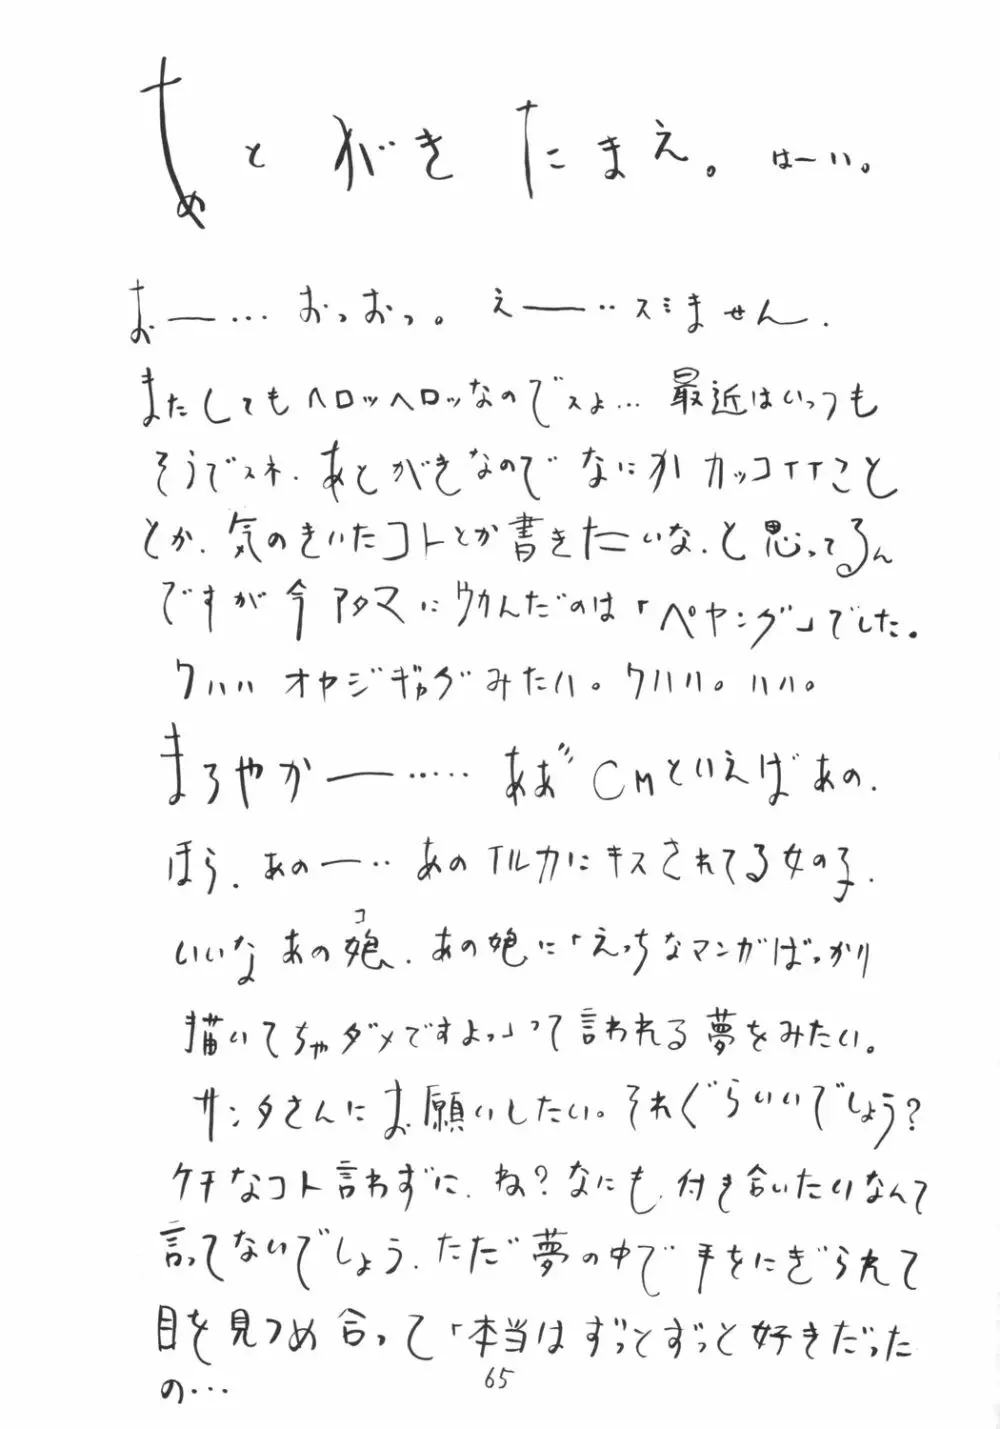 あとがきたまえ。はーい。
おー… おっおっ。えー‥スミません.
またしてもヘロッヘロッなのでスよ… 最近はいっつも
そうでスネ.あとがきなのでなにかカッコイイこと
とか.気のきいたコトとか書きたいな.と思ってるん
ですが今アタマにウカんだのは「ペヤング」でした。
クハハオヤジギャグみたい。クハハ。ハハ。
まろやかー…… ああ〃CMといえばあの.
ほら.あのー‥あのイルカにキスされてる女の子.
いいなあの娘コ.あの娘に「えっちなマンガばっかり
描いてちゃダメですよっ」って言われる夢をみたい。
サンタさんにお願いしたい。それぐらいいいでしょう?
ケチなコト言わずに.ね?なにも付き合いたいなんて
言ってないでしょう.ただ夢の中で手をにぎられて
目を見つめ合って「本当はずっとずっと好きだった
の…
65